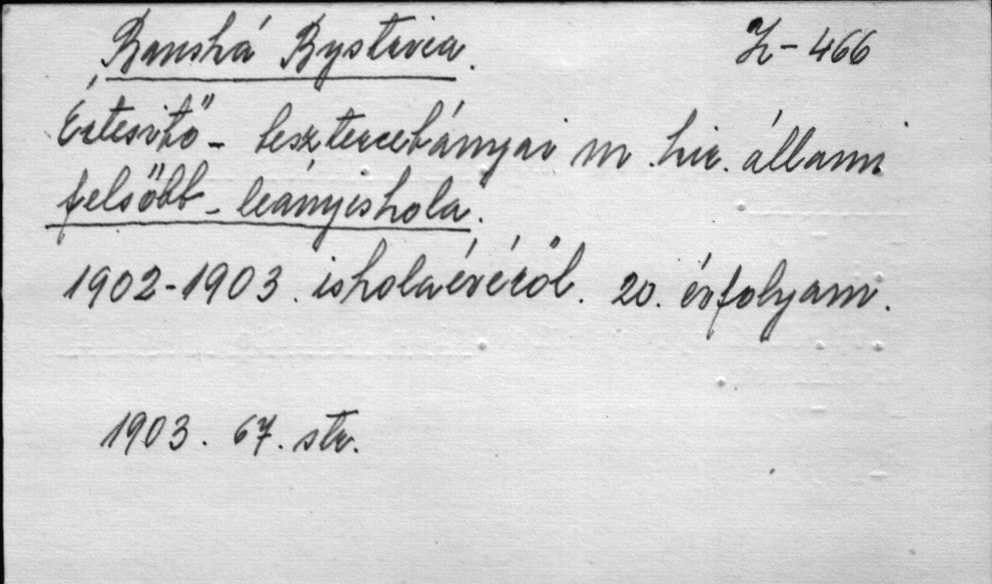 Banská Bystrica.
K-466
Értesitő - besztercebányai m. kir. állami
felsőbb - leányiskola.
1902-1903. iskolaévéről. 20. évfolyam.
1903. 67. str.